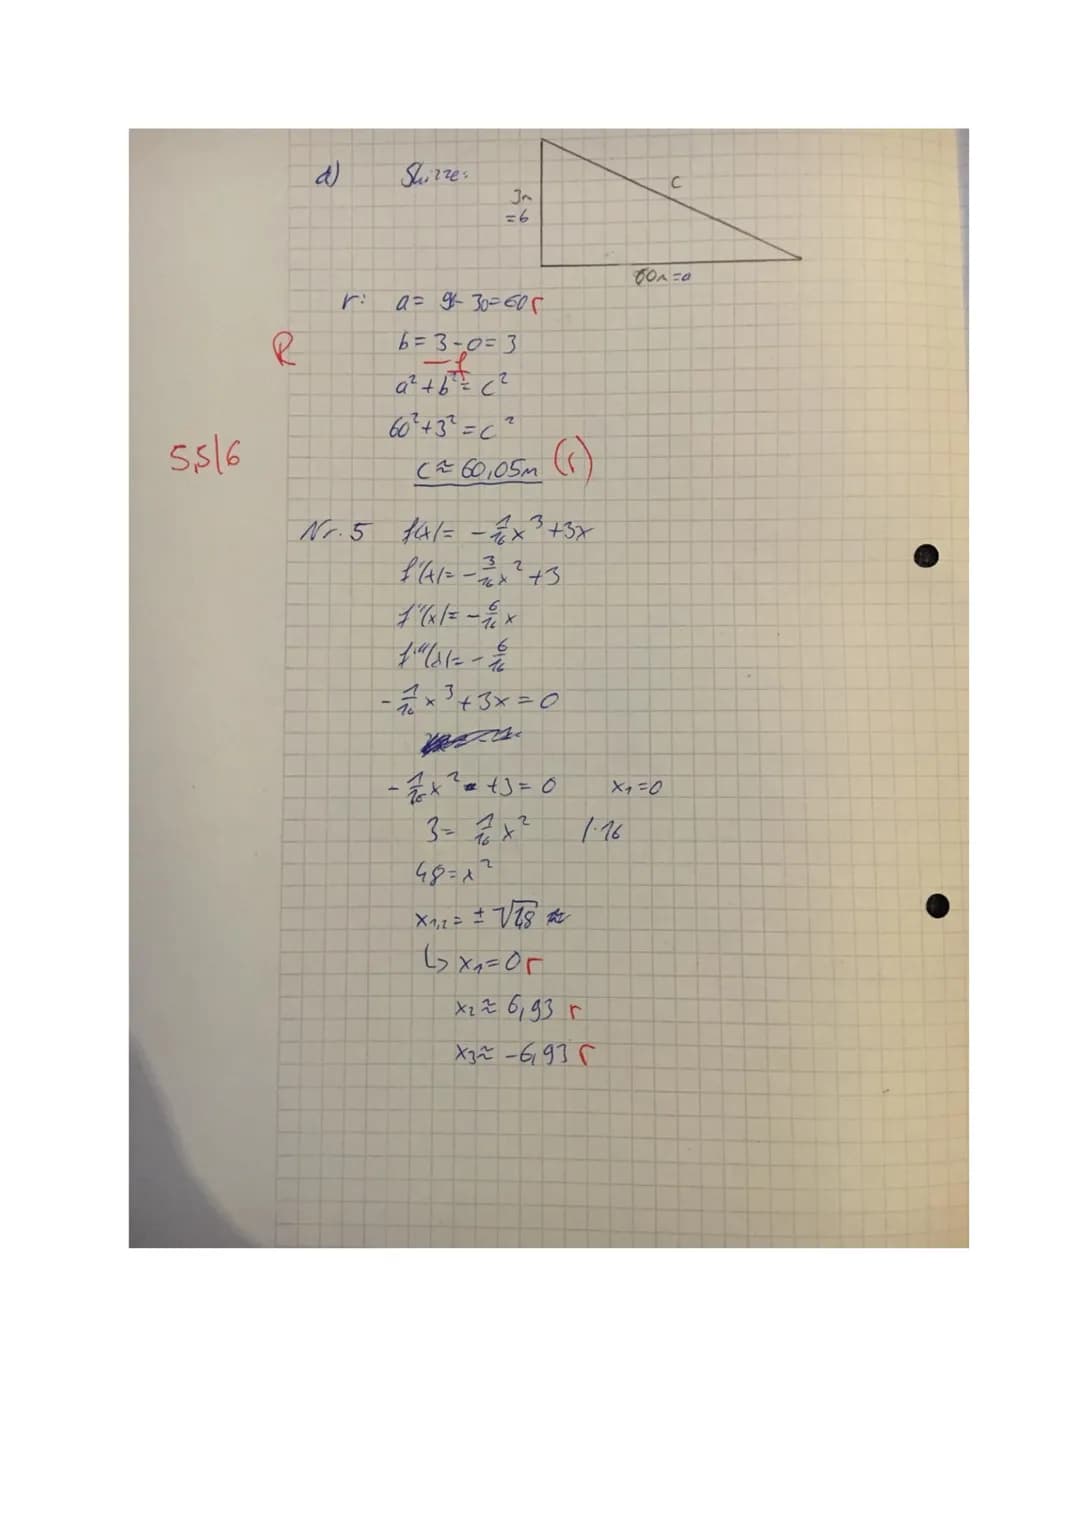 d) Skizze:
c
3m
=b
60m=a
r: a= 90-30=60 r
R b=3-0=3
f
a²+b²=c²
60²+3²=c²
5,5/6
c≈60,05m (r)
Nr. 5 f(x)= -1/16x³+3x
f'(x)= -3/16x²+3
f''(x)= -6/16x
f'''(x)= -6/16
-1/16x³+3x=0
-1/16x²+3=0 x₁=0
3=1/16x² /·16
48=x²
x₁,₂=±√48
↳ x₁=0 r
x₂≈6,93 r
x₃≈-6,93 r